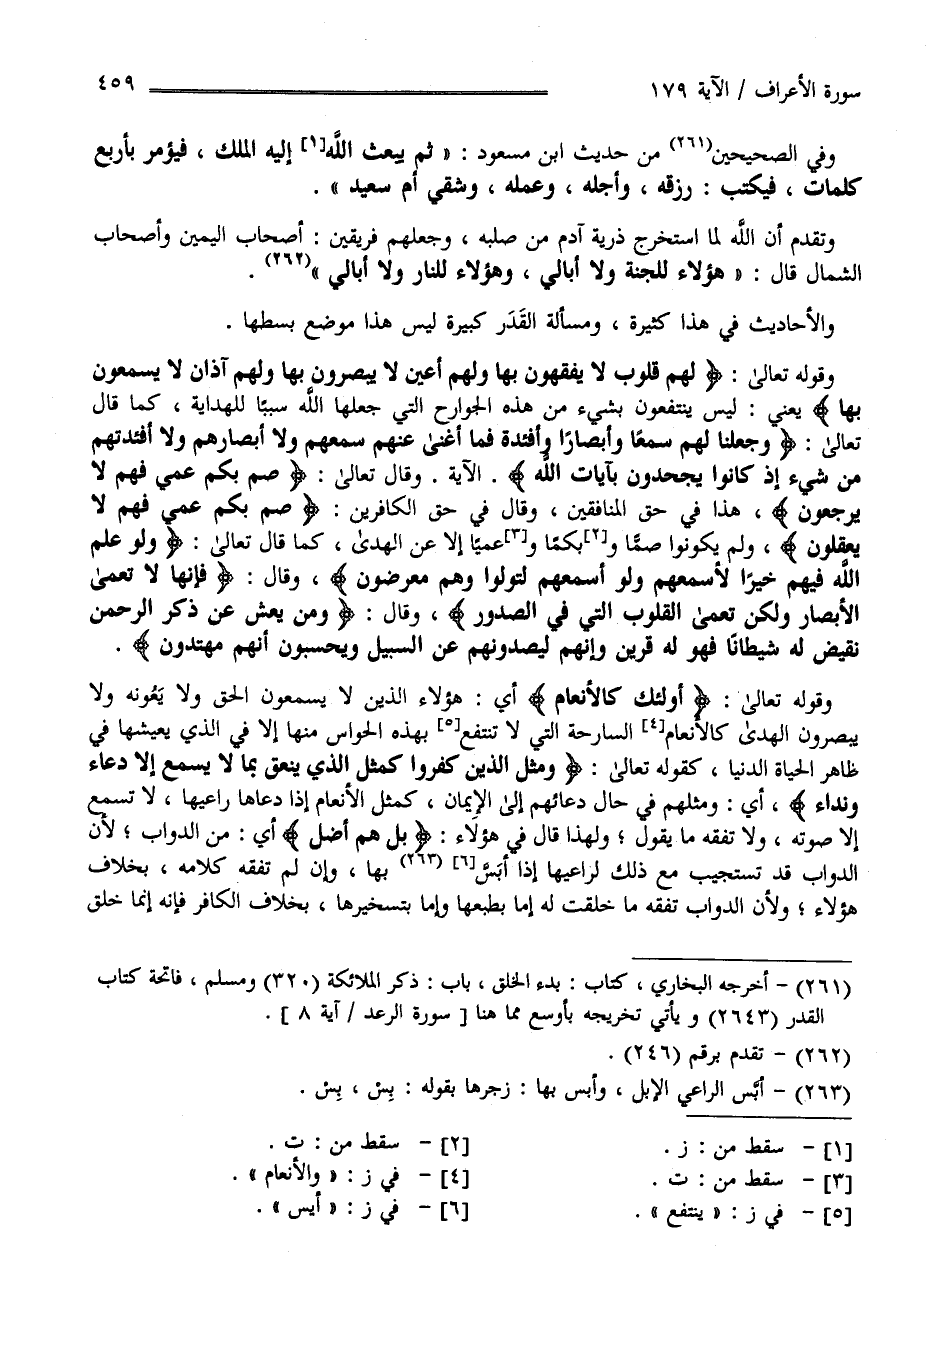 سورة الأعراف / الآية ١٧٩ ٤٥٩
وفي الصحيحين(٢٦١) من حديث ابن مسعود : « ثم يبعث اللَّه[١] إليه الملك ، فيؤمر بأربع
كلمات ، فيكتب : رزقه ، وأجله ، وعمله ، وشقي أم سعيد » .
وتقدم أن اللَّه لما استخرج ذرية آدم من صلبه ، وجعلهم فريقين : أصحاب اليمين وأصحاب
الشمال قال : « هؤلاء للجنة ولا أبالي ، وهؤلاء للنار ولا أبالي »(٢٦٢) .
والأحاديث في هذا كثيرة ، ومسألة القَدَر كبيرة ليس هذا موضع بسطها .
وقوله تعالىٰ : ﴿ لهم قلوب لا يفقهون بها ولهم أعين لا يبصرون بها ولهم آذان لا يسمعون
بها ﴾ يعني : ليس ينتفعون بشيء من هذه الجوارح التي جعلها اللَّه سببًا للهداية ، كما قال
تعالىٰ : ﴿ وجعلنا لهم سمعًا وأبصارًا وأفئدة فما أغنىٰ عنهم سمعهم ولا أبصارهم ولا أفئدتهم
من شيء إذ كانوا يجحدون بآيات اللَّه ﴾ . الآية . وقال تعالىٰ : ﴿ صم بكم عمي فهم لا
يرجعون ﴾ ، هذا في حق المنافقين ، وقال في حق الكافرين : ﴿ صم بكم عمي فهم لا
يعقلون ﴾ ، ولم يكونوا صمًّا و[٢]بكمًا و[٣]عميًا إلا عن الهدىٰ ، كما قال تعالىٰ : ﴿ ولو علم
اللَّه فيهم خيرًا لأسمعهم ولو أسمعهم لتولوا وهم معرضون ﴾ ، وقال : ﴿ فإنها لا تعمىٰ
الأبصار ولكن تعمىٰ القلوب التي في الصدور ﴾ ، وقال : ﴿ ومن يعش عن ذكر الرحمن
نقيض له شيطانًا فهو له قرين وإنهم ليصدونهم عن السبيل ويحسبون أنهم مهتدون ﴾ .
وقوله تعالىٰ : ﴿ أولئك كالأنعام ﴾ أي : هؤلاء الذين لا يسمعون الحق ولا يَعُونه ولا
يبصرون الهدىٰ كالأنعام[٤] السارحة التي لا تنتفع[٥] بهذه الحواس منها إلا في الذي يعيشها في
ظاهر الحياة الدنيا ، كقوله تعالىٰ : ﴿ ومثل الذين كفروا كمثل الذي ينعق بما لا يسمع إلا دعاء
ونداء ﴾ ، أي : ومثلهم في حال دعائهم إلىٰ الإيمان ، كمثل الأنعام إذا دعاها راعيها ، لا تسمع
إلا صوته ، ولا تفقه ما يقول ؛ ولهذا قال في هؤلَاء : ﴿ بل هم أضل ﴾ أي : من الدواب ؛ لأن
الدواب قد تستجيب مع ذلك لراعيها إذا أبَسَّ[٦] (٢٦٣) بها ، وإن لم تفقه كلامه ، بخلاف
هؤلاء ؛ ولأن الدواب تفقه ما خلقت له إما بطبعها وإما بتسخيرها ، بخلاف الكافر فإنه إنما خلق
(٢٦١) - أخرجه البخاري ، كتاب : بدء الخلق ، باب : ذكر الملائكة (٣٢٠) ومسلم ، فاتحة كتاب
القدر (٢٦٤٣) و يأتي تخريجه بأوسع مما هنا [ سورة الرعد / آية ٨ ] .
(٢٦٢) - تقدم برقم (٢٤٦) .
(٢٦٣) - أبَّس الراعي الإبل ، وأبس بها : زجرها بقوله : بِسْ ، بِسْ .
[١] - سقط من : ز . [٢] - سقط من : ت .
[٣] - سقط من : ت . [٤] - في ز : « والأنعام » .
[٥] - في ز : « ينتفع » . [٦] - في ز : « أيس » .